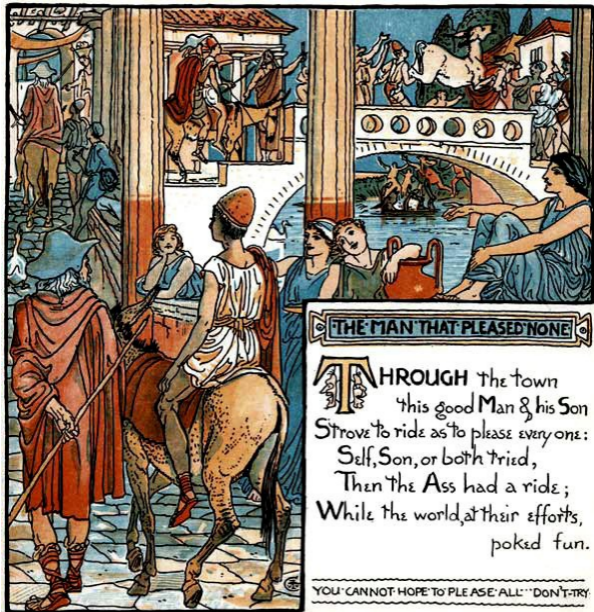 THE·MAN·THAT·PLEASED·NONE
THROUGH the town
this good Man & his Son
Strove to ride as to please everyone:
Self, Son, or both tried,
Then the Ass had a ride;
While the world, at their efforts,
poked fun.
YOU·CANNOT·HOPE·TO·PLEASE·ALL···DON'T·TRY·